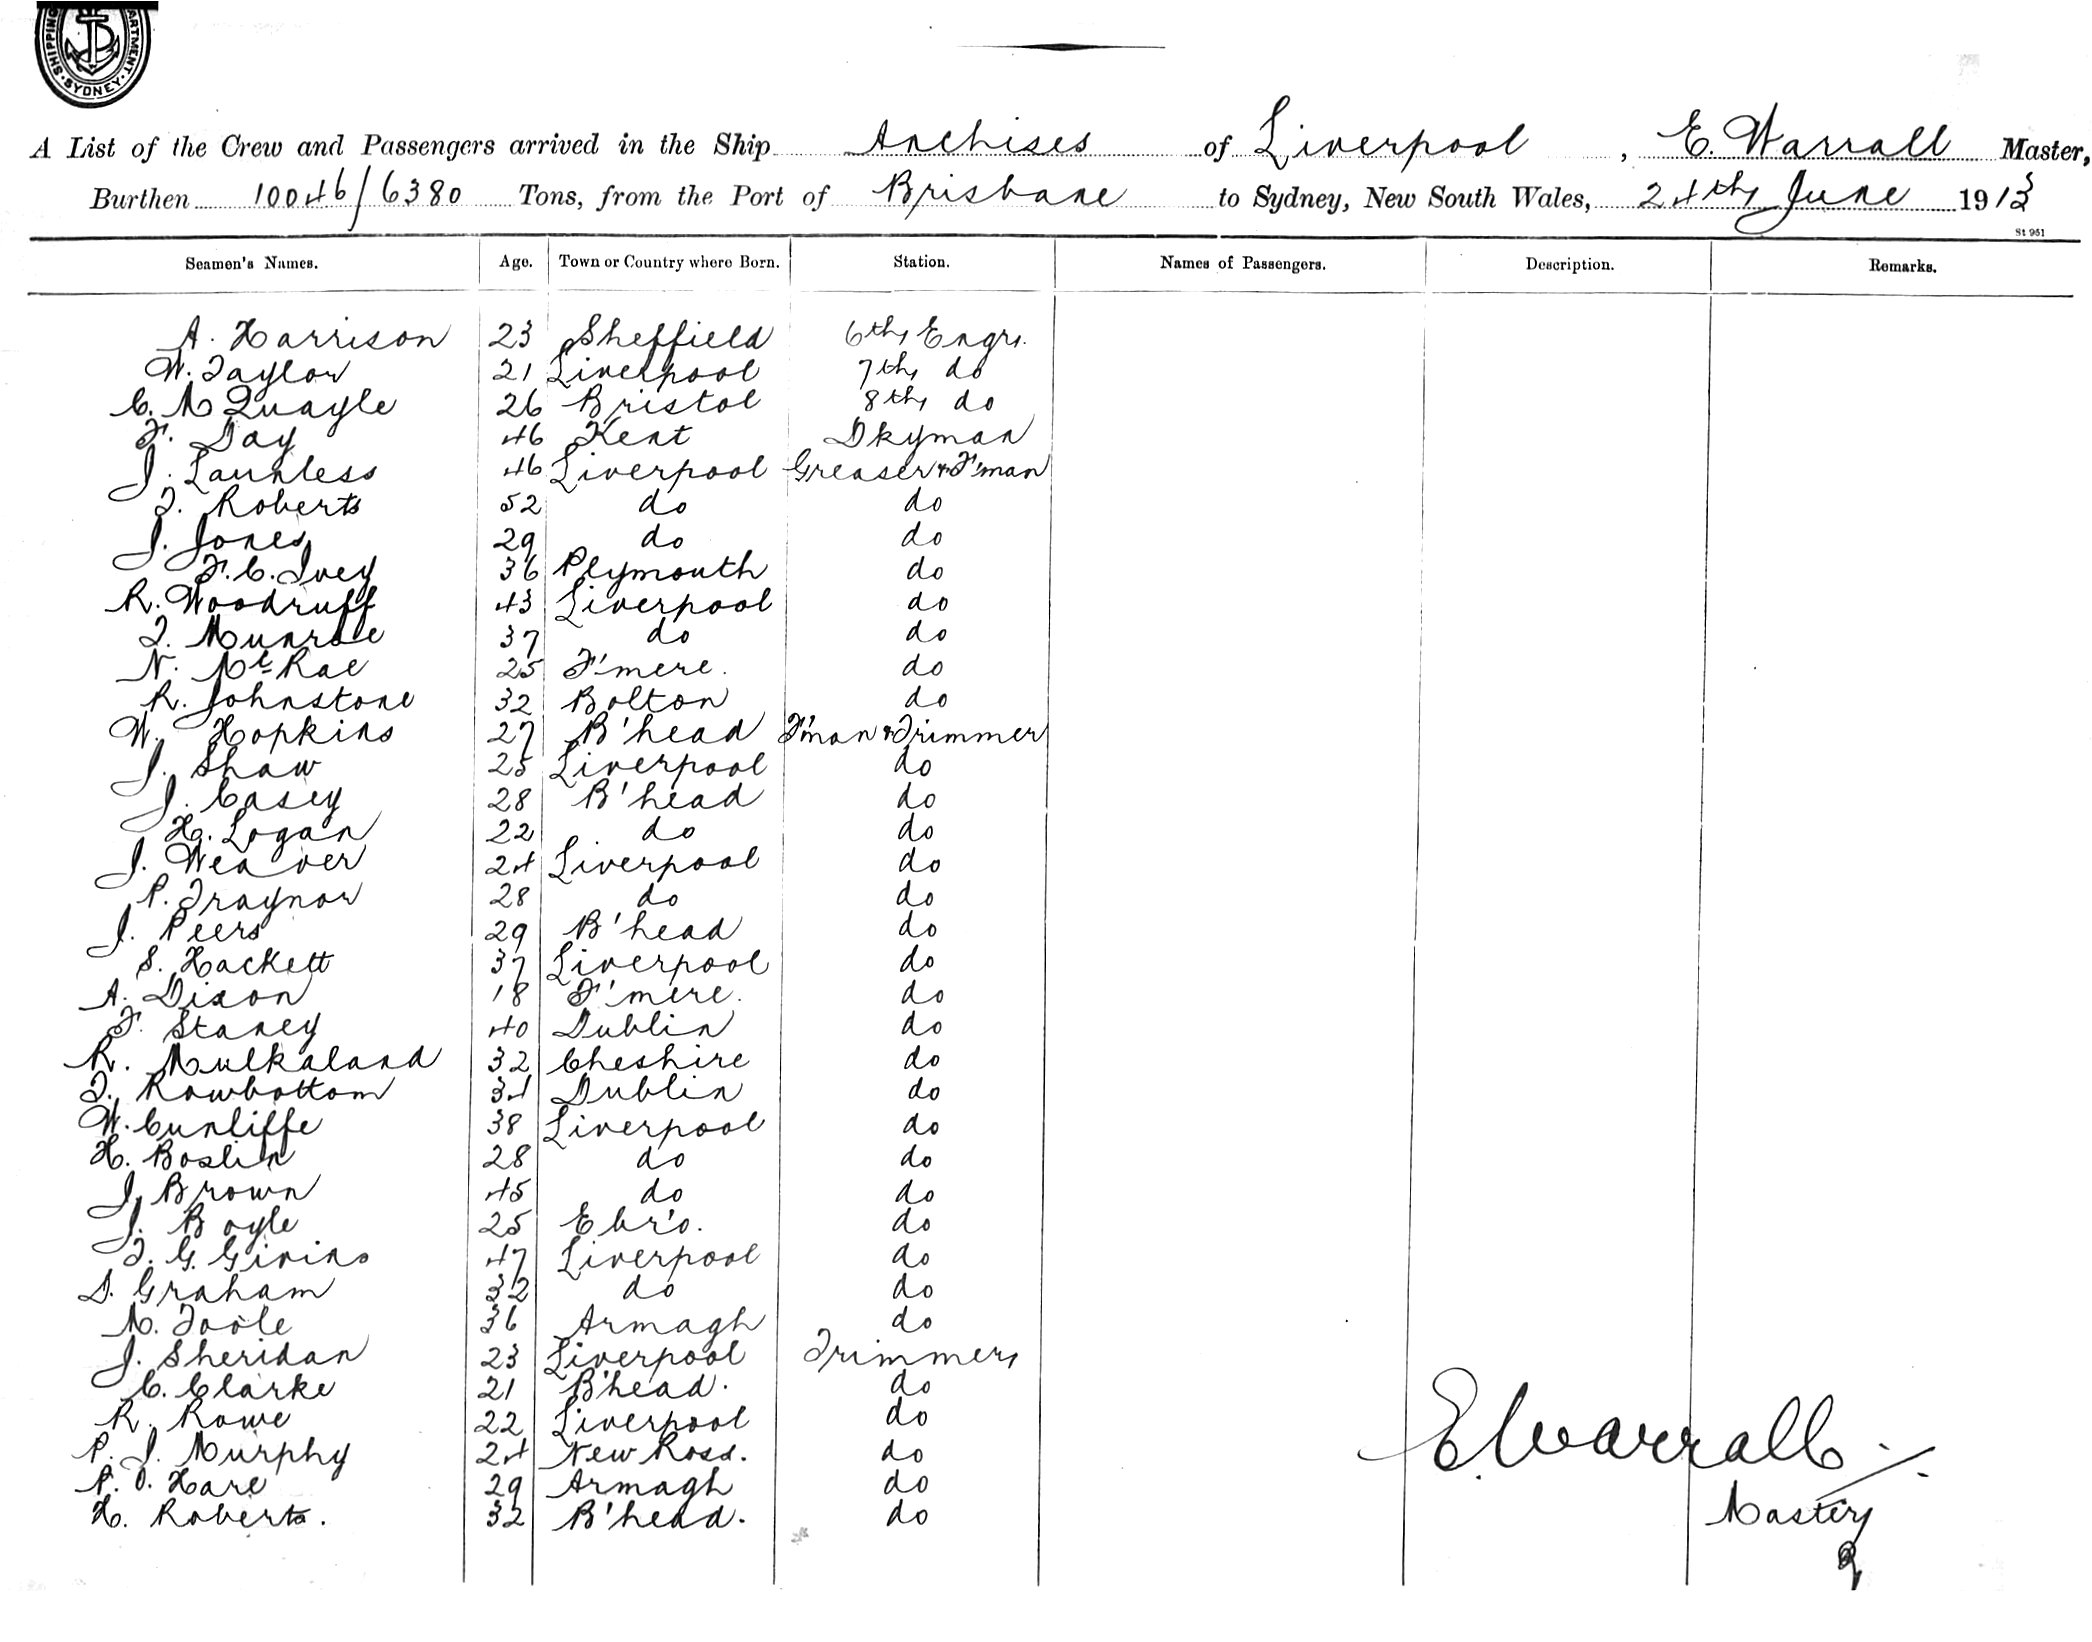 SHIPPING DEPARTMENT · SYDNEY ·
A List of the Crew and Passengers arrived in the Ship Anchises of Liverpool, E. Warrall Master,
Burthen 10046/6380 Tons, from the Port of Brisbane to Sydney, New South Wales, 24th June 1913
St 961
Seamen's Names. Age. Town or Country where Born. Station. Names of Passengers. Description. Remarks.
A. Harrison 23 Sheffield 6th Engr.
W. Taylor 21 Liverpool 7th do
C. M Quayle 26 Bristol 8th do
F. Day 46 Kent Dkyman
J. 46 Liverpool Greaser & F'man
T. Roberts 52 do do
J. Jones 29 do do
F. C. Ivey 36 Plymouth do
R. Woodruff 43 Liverpool do
T. Munroe 37 do do
N. Mc Rae 25 F'mere. do
R. Johnstone 32 Bolton do
W. Hopkins 27 B'head F'man & Trimmer
J. Shaw 25 Liverpool do
J. Casey 28 B'head do
H. Logan 22 do do
J. Weaver 24 Liverpool do
P. Traynor 28 do do
J. Peers 29 B'head do
S. Hackett 37 Liverpool do
A. Dixon 18 F'mere. do
F. Staney 40 Dublin do
R. Mulkaland 32 Cheshire do
T. Rowbottom 34 Dublin do
W. Cunliffe 38 Liverpool do
H. Boslin 28 do do
J. Brown 45 do do
J. Boyle 25 Ebr'o. do
T. G. Givins 47 Liverpool do
D. Graham 32 do do
M. Toole 36 Armagh do
J. Sheridan 23 Liverpool Trimmer
C. Clarke 21 B'head. do
R. Rowe 22 Liverpool do
P. J. Murphy 24 New Ross. do
P. O. Hare 29 Armagh do
H. Roberts. 32 B'head. do
E. Warrall
Master